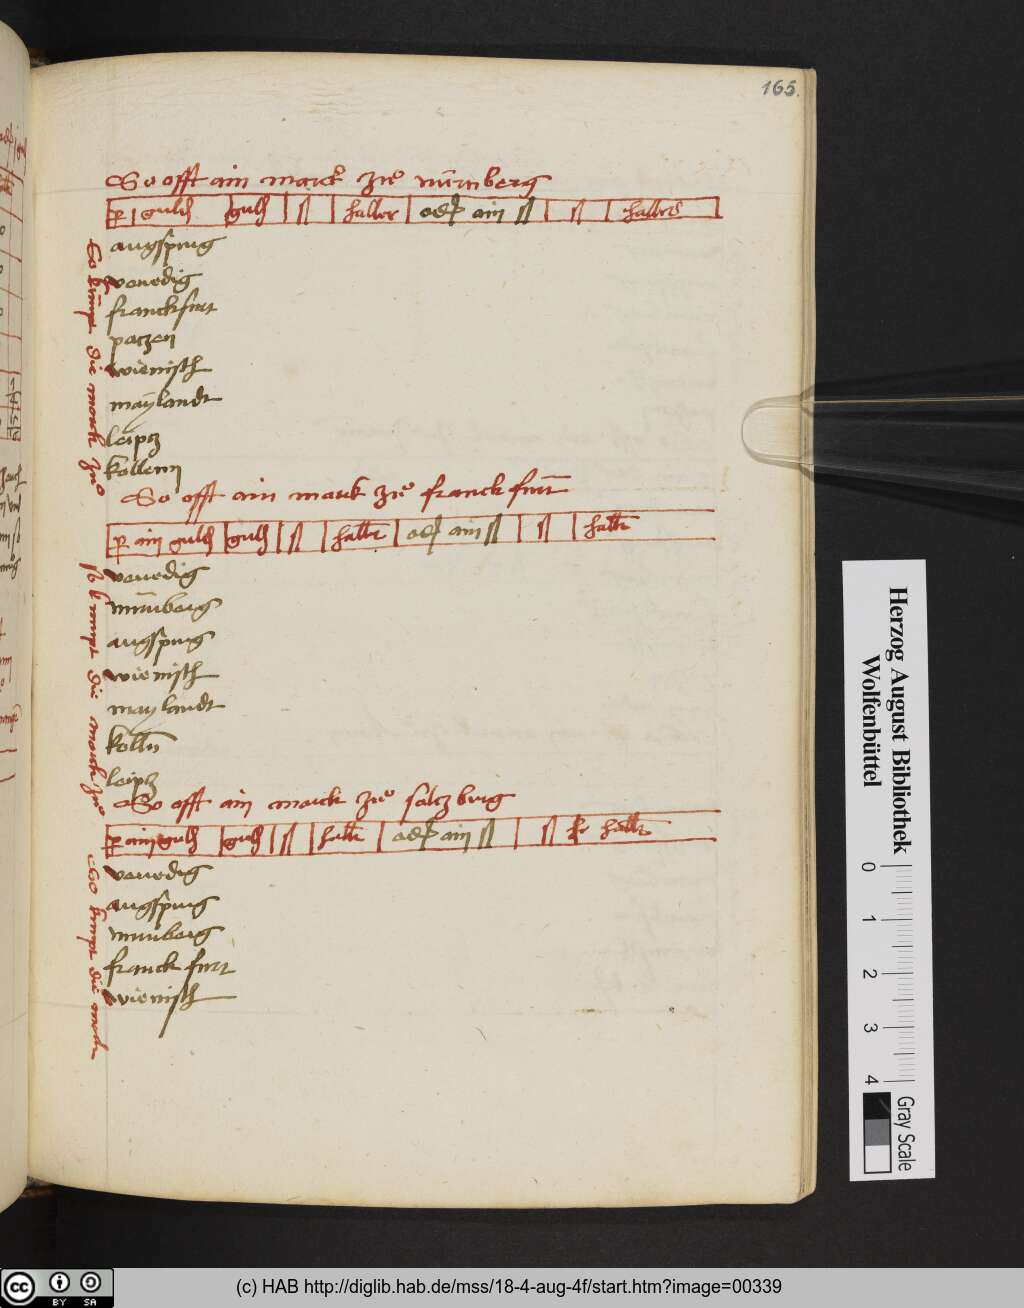 165.
So offt ain marck zuͦ nürnberg
p guld guld ß haller oder ain ß ß haller
augspurg
venedig
franckfurt
patzen
wienisch
maylandt
leiptz
kollenn
So kumpt die marck zuͦ
So offt ain marck zuͦ franckfurt
p ain guld guld ß haller oder ain ß ß haller
venedig
nürnberg
augspurg
wienisch
maylandt
kolln
leiptz
so kumpt die marck zuͦ
So offt ain marck zuͦ saltzburg
p ain guld guld ß haller oder ain ß ß haller
venedig
augspurg
nurnberg
franckfurt
wienisch
So kumpt die marck
Herzog August Bibliothek
Wolfenbüttel
0 1 2 3 4
Gray Scale
cc BY SA
(c) HAB http://diglib.hab.de/mss/18-4-aug-4f/start.htm?image=00339